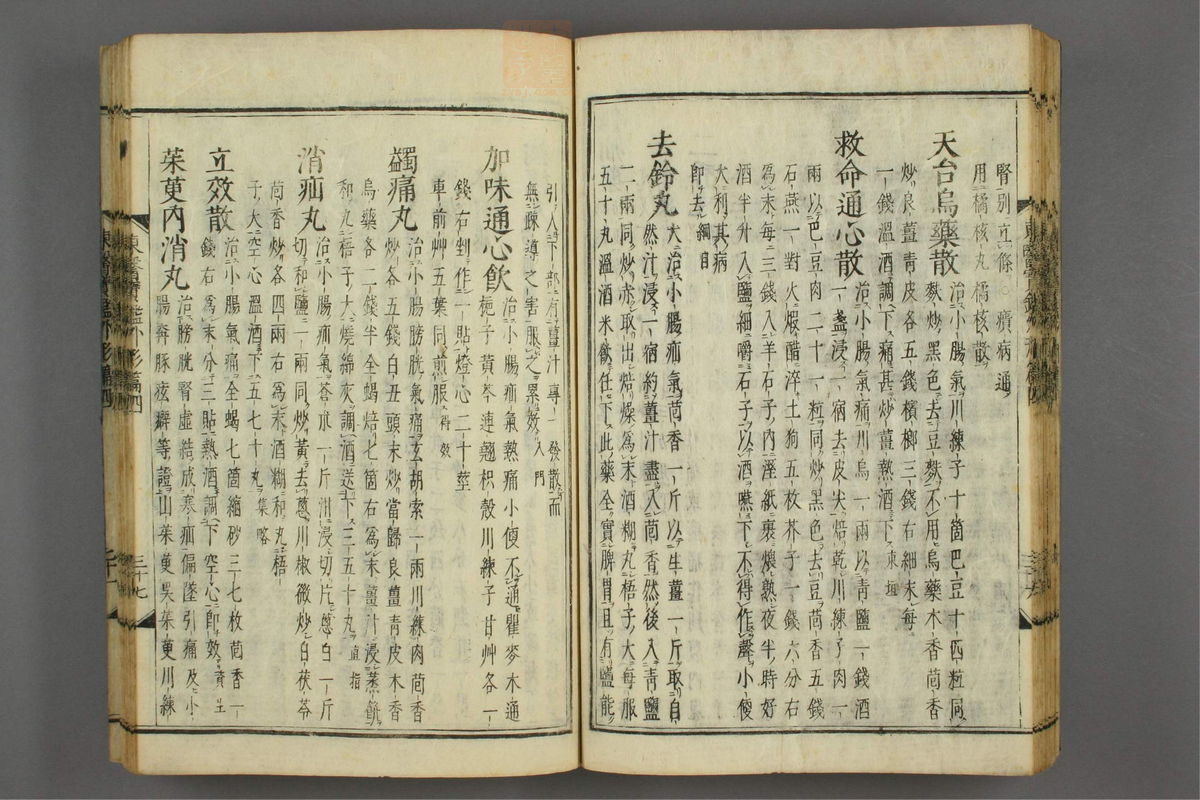 腎別立條○㿗病通
用橘核丸橘核散
天台烏藥散治小腸氣川練子十箇巴豆十四粒同
麩炒黑色去豆麩不用烏藥木香茴香
炒良薑青皮各五錢檳榔三錢右細末每
一錢溫酒調下痛甚炒薑熱酒下東垣
救命通心散治小腸氣痛川烏一兩以青鹽一錢酒
一盞浸一宿去皮尖焙乾川練子肉一
兩以巴豆肉二十一粒同炒黑色去豆茴香五錢
石燕一對火煅醋淬土狗五枚芥子一錢六分右
爲末每三錢入羊石子內溼紙裹煨熟夜半時好
酒半升入鹽細嚼石子以酒嚥下不得作聲小便
大利其病
即去綱目
去鈴丸大治小腸疝氣茴香一斤以生薑一斤取自
然汁浸一宿約薑汁盡入茴香然後入青鹽
二兩同炒赤取出焙燥爲末酒糊丸梧子大每服
五十丸溫酒米飲任下此藥全實脾胃且有鹽能
引入下部有薑汁專一發散而
無疎導之害服之累效入門
加味通心飮治小腸疝氣熱痛小便不通瞿麥木通
梔子黃芩連翹枳殼川練子甘艸各一
錢右剉作一貼燈心二十莖
車前艸五葉同煎服得效
蠲痛丸治小腸膀胱氣痛玄胡索一兩川練肉茴香
炒各五錢白丑頭末炒當歸良薑青皮木香
烏藥各二錢半全蝎焙七箇右爲末薑汁浸蒸餠
和丸梧子大燒綿灰調酒送下三五十丸直指
消疝丸治小腸疝氣蒼朮一斤泔浸切片葱白一斤
切和鹽一兩同炒黃去葱川椒微炒白茯苓
茴香炒各四兩右爲末酒糊和丸梧
子大空心溫酒下五七十丸集略
立效散治小腸氣痛全蝎七箇縮砂三七枚茴香一
錢右爲末分三貼熱酒調下空心即效資生
茱萸內消丸治膀胱腎虛結成寒疝偏墜引痛及小
腸奔豚痃癖等證山茱萸吳茱萸川練